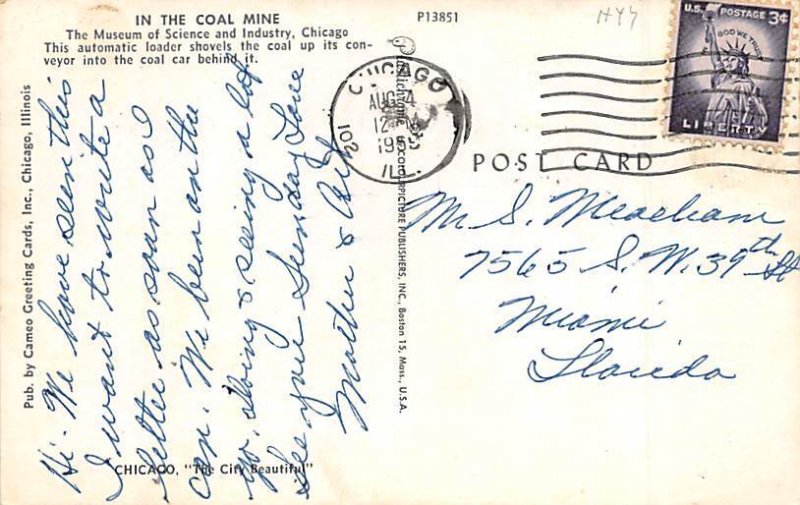 IN THE COAL MINE
The Museum of Science and Industry, Chicago
This automatic loader shovels the coal up its con-
veyor into the coal car behind it.
P13851
Pub. by Cameo Greeting Cards, Inc., Chicago, Illinois
Hi- We have seen this
I want to write a
letter as soon as I
can. We been on the
go, doing & seeing a lot
See you Sunday Love
Mother & Art
CHICAGO, "The City Beautiful"
PICTURE PUBLISHERS, INC., Boston 15, Mass., U.S.A.
CHICAGO
AUG 4
12
ILL.
U.S. POSTAGE 3¢
IN GOD WE TRUST
LIBERTY
POST CARD
Mr S. Meacham
7565 S.W. 39th St
Miami
Florida